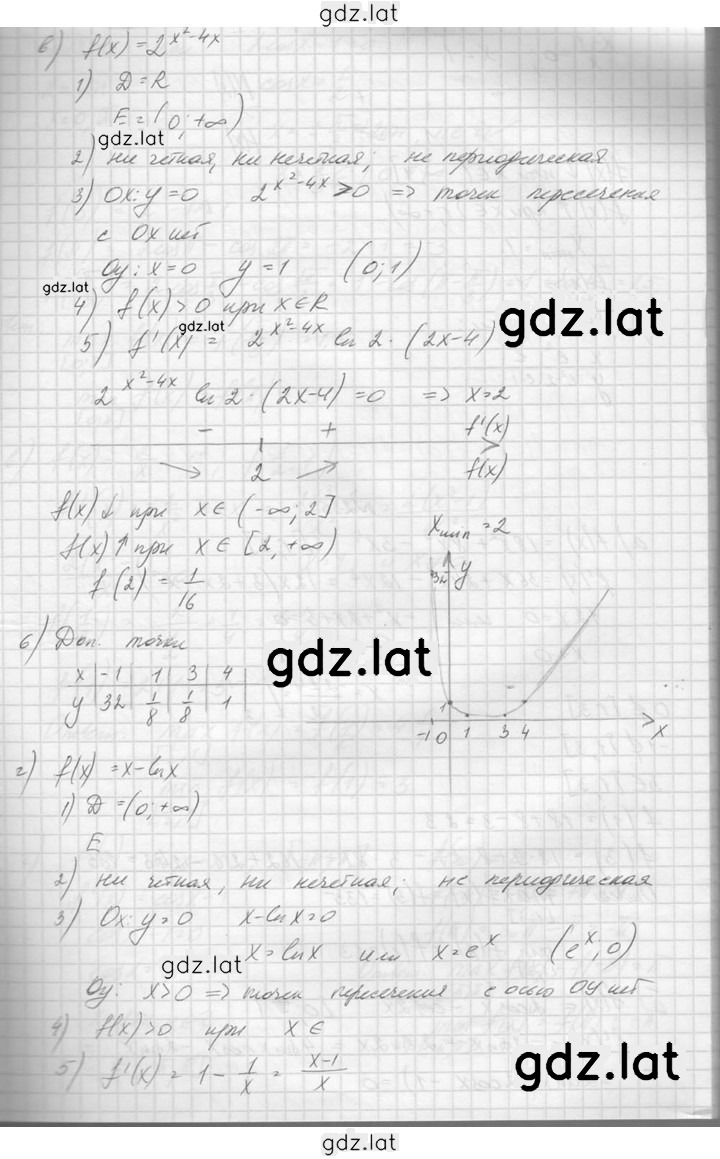 gdz.lat
в) f(x) = 2^{x²-4x}
1) D = R
E = (0; +∞)
gdz.lat
2) ни четная, ни нечетная; не периодическая
3) Ox: y = 0 2^{x²-4x} > 0 => точек пересечения
с Ox нет
Oy: x = 0 y = 1 (0; 1)
gdz.lat
4) f(x) > 0 при x ∈ R
gdz.lat
gdz.lat
5) f'(x) = 2^{x²-4x} ln 2 · (2x-4)
2^{x²-4x} ln 2 · (2x-4) = 0 => x = 2
- + f'(x)
2 f(x)
f(x) ↓ при x ∈ (-∞; 2]
f(x) ↑ при x ∈ [2, +∞)
x min = 2
f(2) = 1/16
6) Доп. точки
x -1 1 3 4
y 32 1/8 1/8 1
gdz.lat
32 y
1
-1 0 1 3 4 x
г) f(x) = x - ln x
1) D = (0; +∞)
E
2) ни четная, ни нечетная; не периодическая
3) Ox: y = 0 x - ln x = 0
x = ln x или x = e^x (e^x; 0)
gdz.lat
Oy: x > 0 => точек пересечения с осью Oy нет
4) f(x) > 0 при x ∈
5) f'(x) = 1 - 1/x = x-1/x
gdz.lat
gdz.lat